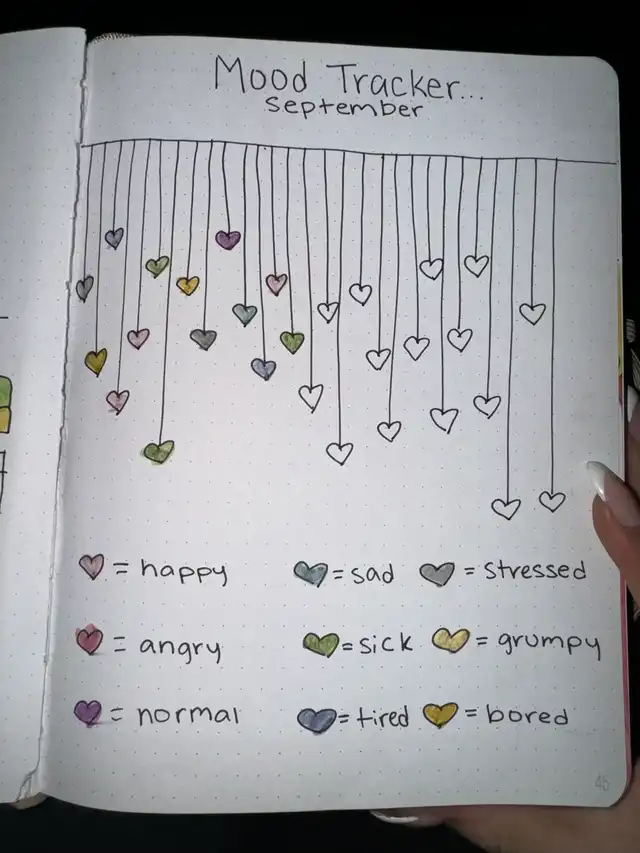 Mood Tracker...
September
= happy = sad = stressed
= angry = sick = grumpy
= normal = tired = bored
46